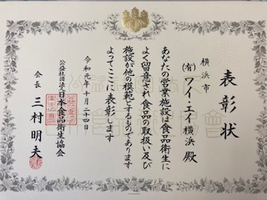 表彰状
横浜市
(有)ワイ・エイ横浜 殿
あなたの営業施設は食品衛生に
よく留意され食品の取扱い及び
施設が他の模範とするものであります
よってここに表彰します
令和元年十月二十四日
公益社団法人日本食品衛生協会
会長 三村明夫